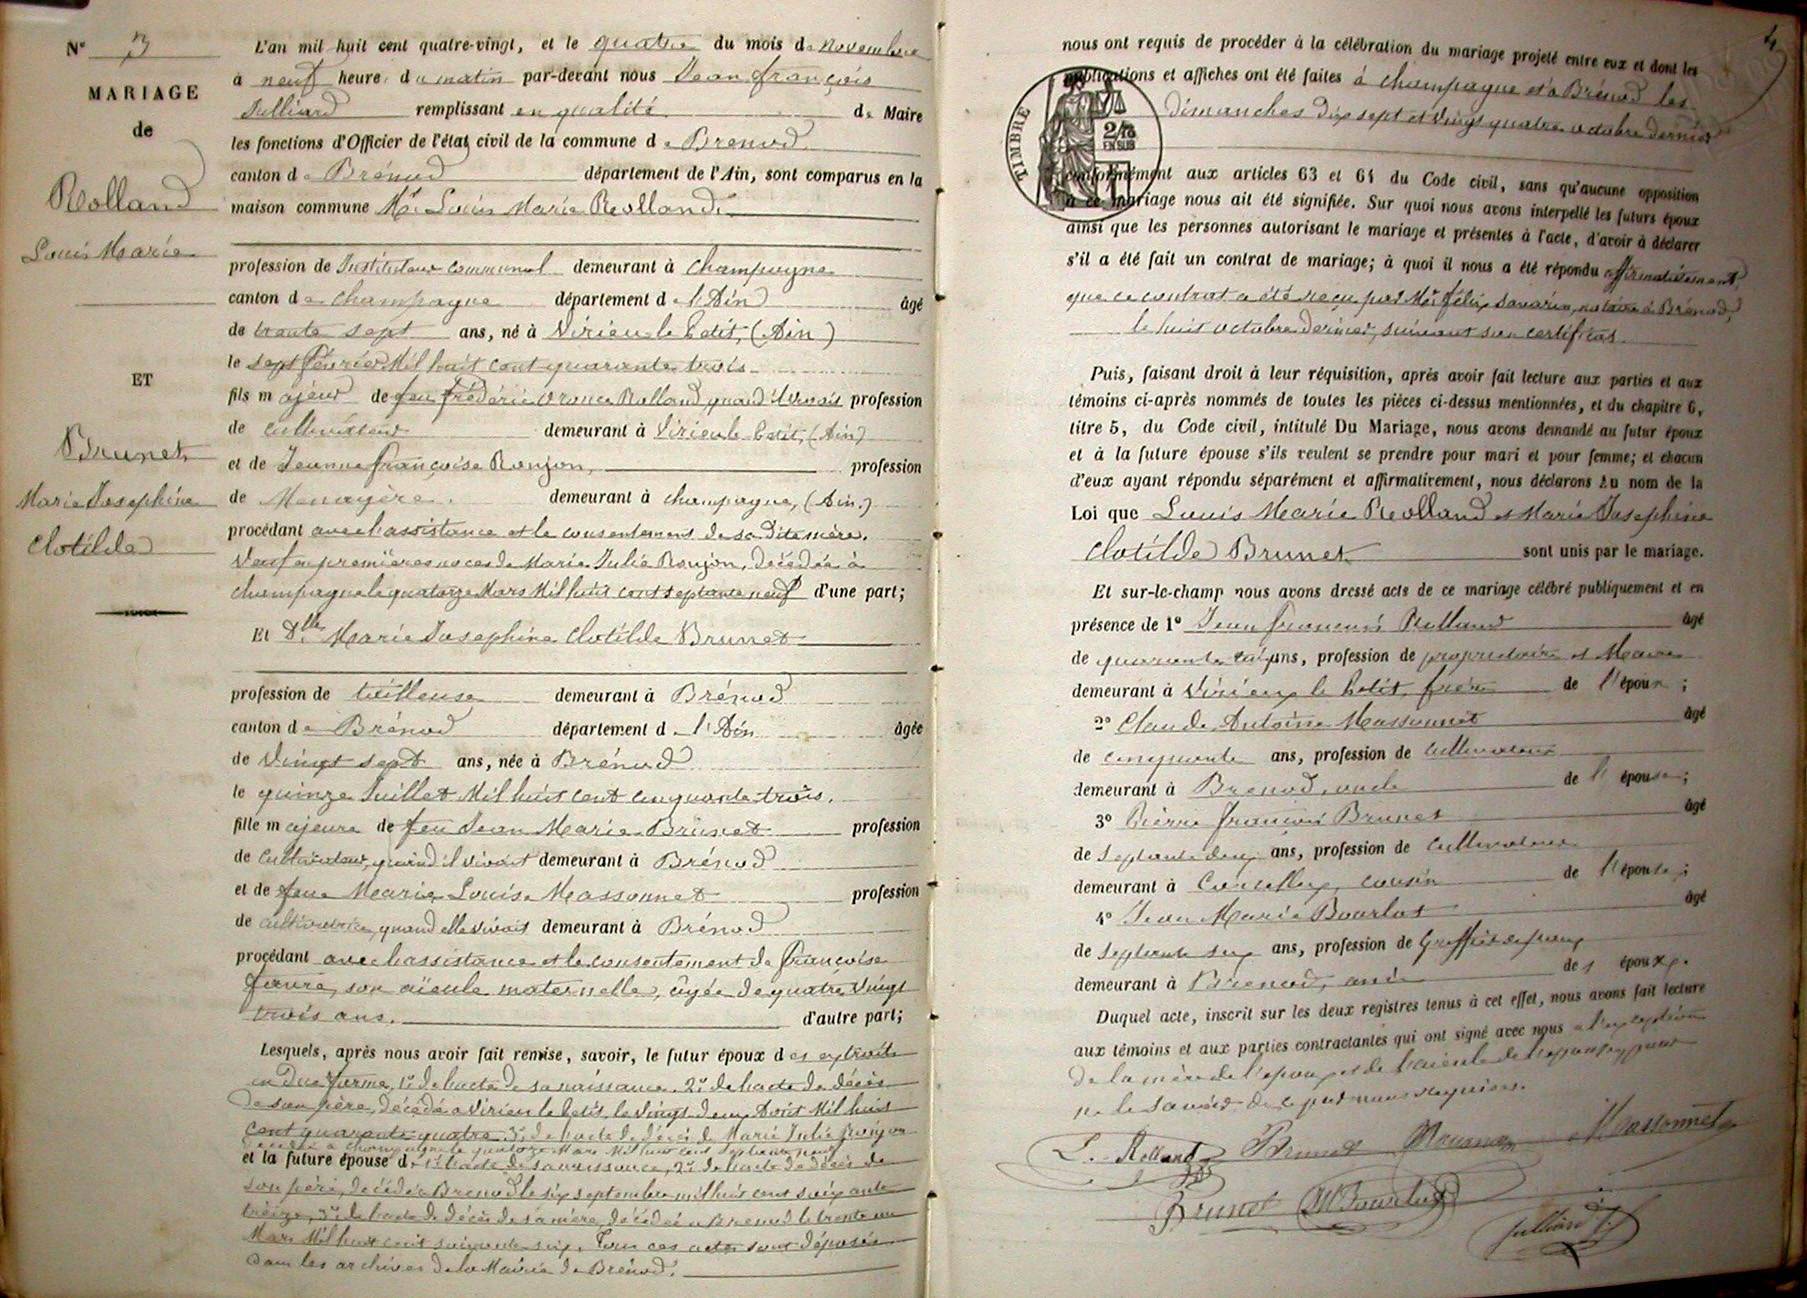 N° 3
MARIAGE
de
Rolland
Louis Marie
ET
Brunet
Marie Josephine
Clotilde
L'an mil huit cent quatre-vingt, et le quatre du mois de novembre
à neuf heure du matin par-devant nous Jean François
Julliard remplissant en qualité de Maire
les fonctions d'Officier de l'état civil de la commune de Brenod
canton de Brénod département de l'Ain, sont comparus en la
maison commune Mr Louis Marie Rolland
profession de Instituteur communal demeurant à Champagne
canton de Champagne département de l'Ain âgé
de trente sept ans, né à Virieu le Petit, (Ain)
le sept février Mil huit cent quarante trois
fils majeur de feu frédéric Rolland quand il vivait profession
de cultivateur demeurant à Virieu le Petit, (Ain)
et de Jeanne françoise Roujon, profession
de Menagère demeurant à Champagne, (Ain.)
procédant avec l'assistance et le consentement de sa dite mère.
Veuf en premières noces de Marie Julie Roujon, décédée à
Champagne le quatorze Mars Mil huit cent septante neuf d'une part;
Et Dlle Marie Josephine Clotilde Brunet
profession de tailleuse demeurant à Brénod
canton de Brénod département de l'Ain âgée
de vingt sept ans, née à Brénod
le quinze Juillet Mil huit cent cinquante trois.
fille majeure de feu Jean Marie Brunet profession
de Cultivateur, quand il vivait demeurant à Brénod
et de feue Marie Louise Massonnet profession
de cultivatrice, quand elle vivait demeurant à Brénod
procédant avec l'assistance et le consentement de françoise
favre, son aïeule maternelle, âgée de quatre vingt
trois ans. d'autre part;
Lesquels, après nous avoir fait remise, savoir, le futur époux des extraits
en due forme, 1° de l'acte de sa naissance. 2° de l'acte de décès
de son père, décédé à Virieu le Petit, le vingt deux Août Mil huit
cent quarante quatre 3° de l'acte de décès de Marie Julie Roujon
décédée à Champagne le quatorze Mars Mil huit cent septante neuf
et la future épouse de 1° l'acte de sa naissance, 2° de l'acte de décès de
son père, décédé à Brenod le six septembre mil huit cent soixante
treize, 3° de l'acte de décès de sa mère, décédée à Brenod le trente un
Mars Mil huit cent soixante six. Tous ces actes sont déposés
dans les archives de la Mairie de Brénod.
4
nous ont requis de procéder à la célébration du mariage projeté entre eux et dont les
publications et affiches ont été faites à Champagne et à Brénod les
dimanches dix sept et vingt quatre octobre dernier
TIMBRE
2/10
EN SUS
conformément aux articles 63 et 64 du Code civil, sans qu'aucune opposition
à ce mariage nous ait été signifiée. Sur quoi nous avons interpellé les futurs époux
ainsi que les personnes autorisant le mariage et présentes à l'acte, d'avoir à déclarer
s'il a été fait un contrat de mariage; à quoi il nous a été répondu affirmativement,
que ce contrat a été reçu par Me félix Savarin, notaire à Brénod,
le huit octobre dernier, suivant son certificat.
Puis, faisant droit à leur réquisition, après avoir fait lecture aux parties et aux
témoins ci-après nommés de toutes les pièces ci-dessus mentionnées, et du chapitre 6,
titre 5, du Code civil, intitulé Du Mariage, nous avons demandé au futur époux
et à la future épouse s'ils veulent se prendre pour mari et pour femme; et chacun
d'eux ayant répondu séparément et affirmativement, nous déclarons au nom de la
Loi que Louis Marie Rolland et Marie Josephine
Clotilde Brunet sont unis par le mariage.
Et sur-le-champ nous avons dressé acte de ce mariage célébré publiquement et en
présence de 1° Jean françois Rolland âgé
de quarante ans, profession de propriétaire et Maire
demeurant à Virieu le Petit, frère de l'époux;
2° Claude Antoine Massonnet âgé
de cinquante ans, profession de cultivateur
demeurant à Brenod, oncle de l'épouse;
3° Pierre François Brunet âgé
de septante deux ans, profession de cultivateur
demeurant à Corcelles, cousin de l'épouse;
4° Jean Marie Bourlot âgé
de septante six ans, profession de Greffier de paix
demeurant à Brenod, ami des époux.
Duquel acte, inscrit sur les deux registres tenus à cet effet, nous avons fait lecture
aux témoins et aux parties contractantes qui ont signé avec nous à l'exception
de la mère de l'époux et de l'aïeule de l'épouse pour
ne le savoir de ce par nous requises.
L. Rolland Brunet Massonnet
Brunet Bourlot
Julliard f.